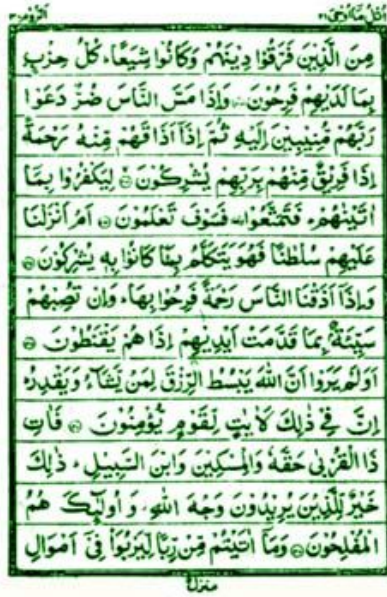 اتل ما اوحی ۲۱ الروم ۳۰
مِنَ الَّذِیْنَ فَرَّقُوْا دِیْنَهُمْ وَكَانُوْا شِیَعًا ؕ كُلُّ حِزْبٍۭ
بِمَا لَدَیْهِمْ فَرِحُوْنَ ۝ وَاِذَا مَسَّ النَّاسَ ضُرٌّ دَعَوْا
رَبَّهُمْ مُّنِیْبِیْنَ اِلَیْهِ ثُمَّ اِذَاۤ اَذَاقَهُمْ مِّنْهُ رَحْمَةً
اِذَا فَرِیْقٌ مِّنْهُمْ بِرَبِّهِمْ یُشْرِكُوْنَ ۝ لِیَكْفُرُوْا بِمَاۤ
اٰتَیْنٰهُمْ ؕ فَتَمَتَّعُوْا ٙ فَسَوْفَ تَعْلَمُوْنَ ۝ اَمْ اَنْزَلْنَا
عَلَیْهِمْ سُلْطٰنًا فَهُوَ یَتَكَلَّمُ بِمَا كَانُوْا بِهٖ یُشْرِكُوْنَ ۝
وَاِذَاۤ اَذَقْنَا النَّاسَ رَحْمَةً فَرِحُوْا بِهَا ؕ وَاِنْ تُصِبْهُمْ
سَیِّئَةٌۢ بِمَا قَدَّمَتْ اَیْدِیْهِمْ اِذَا هُمْ یَقْنَطُوْنَ ۝
اَوَلَمْ یَرَوْا اَنَّ اللّٰهَ یَبْسُطُ الرِّزْقَ لِمَنْ یَّشَآءُ وَیَقْدِرُ ؕ
اِنَّ فِیْ ذٰلِكَ لَاٰیٰتٍ لِّقَوْمٍ یُّؤْمِنُوْنَ ۝ فَاٰتِ
ذَا الْقُرْبٰی حَقَّهٗ وَالْمِسْكِیْنَ وَابْنَ السَّبِیْلِ ؕ ذٰلِكَ
خَیْرٌ لِّلَّذِیْنَ یُرِیْدُوْنَ وَجْهَ اللّٰهِ ؗ وَاُولٰٓىِٕكَ هُمُ
الْمُفْلِحُوْنَ ۝ وَمَاۤ اٰتَیْتُمْ مِّنْ رِّبًا لِّیَرْبُوَا۟ فِیْۤ اَمْوَالِ
منزل